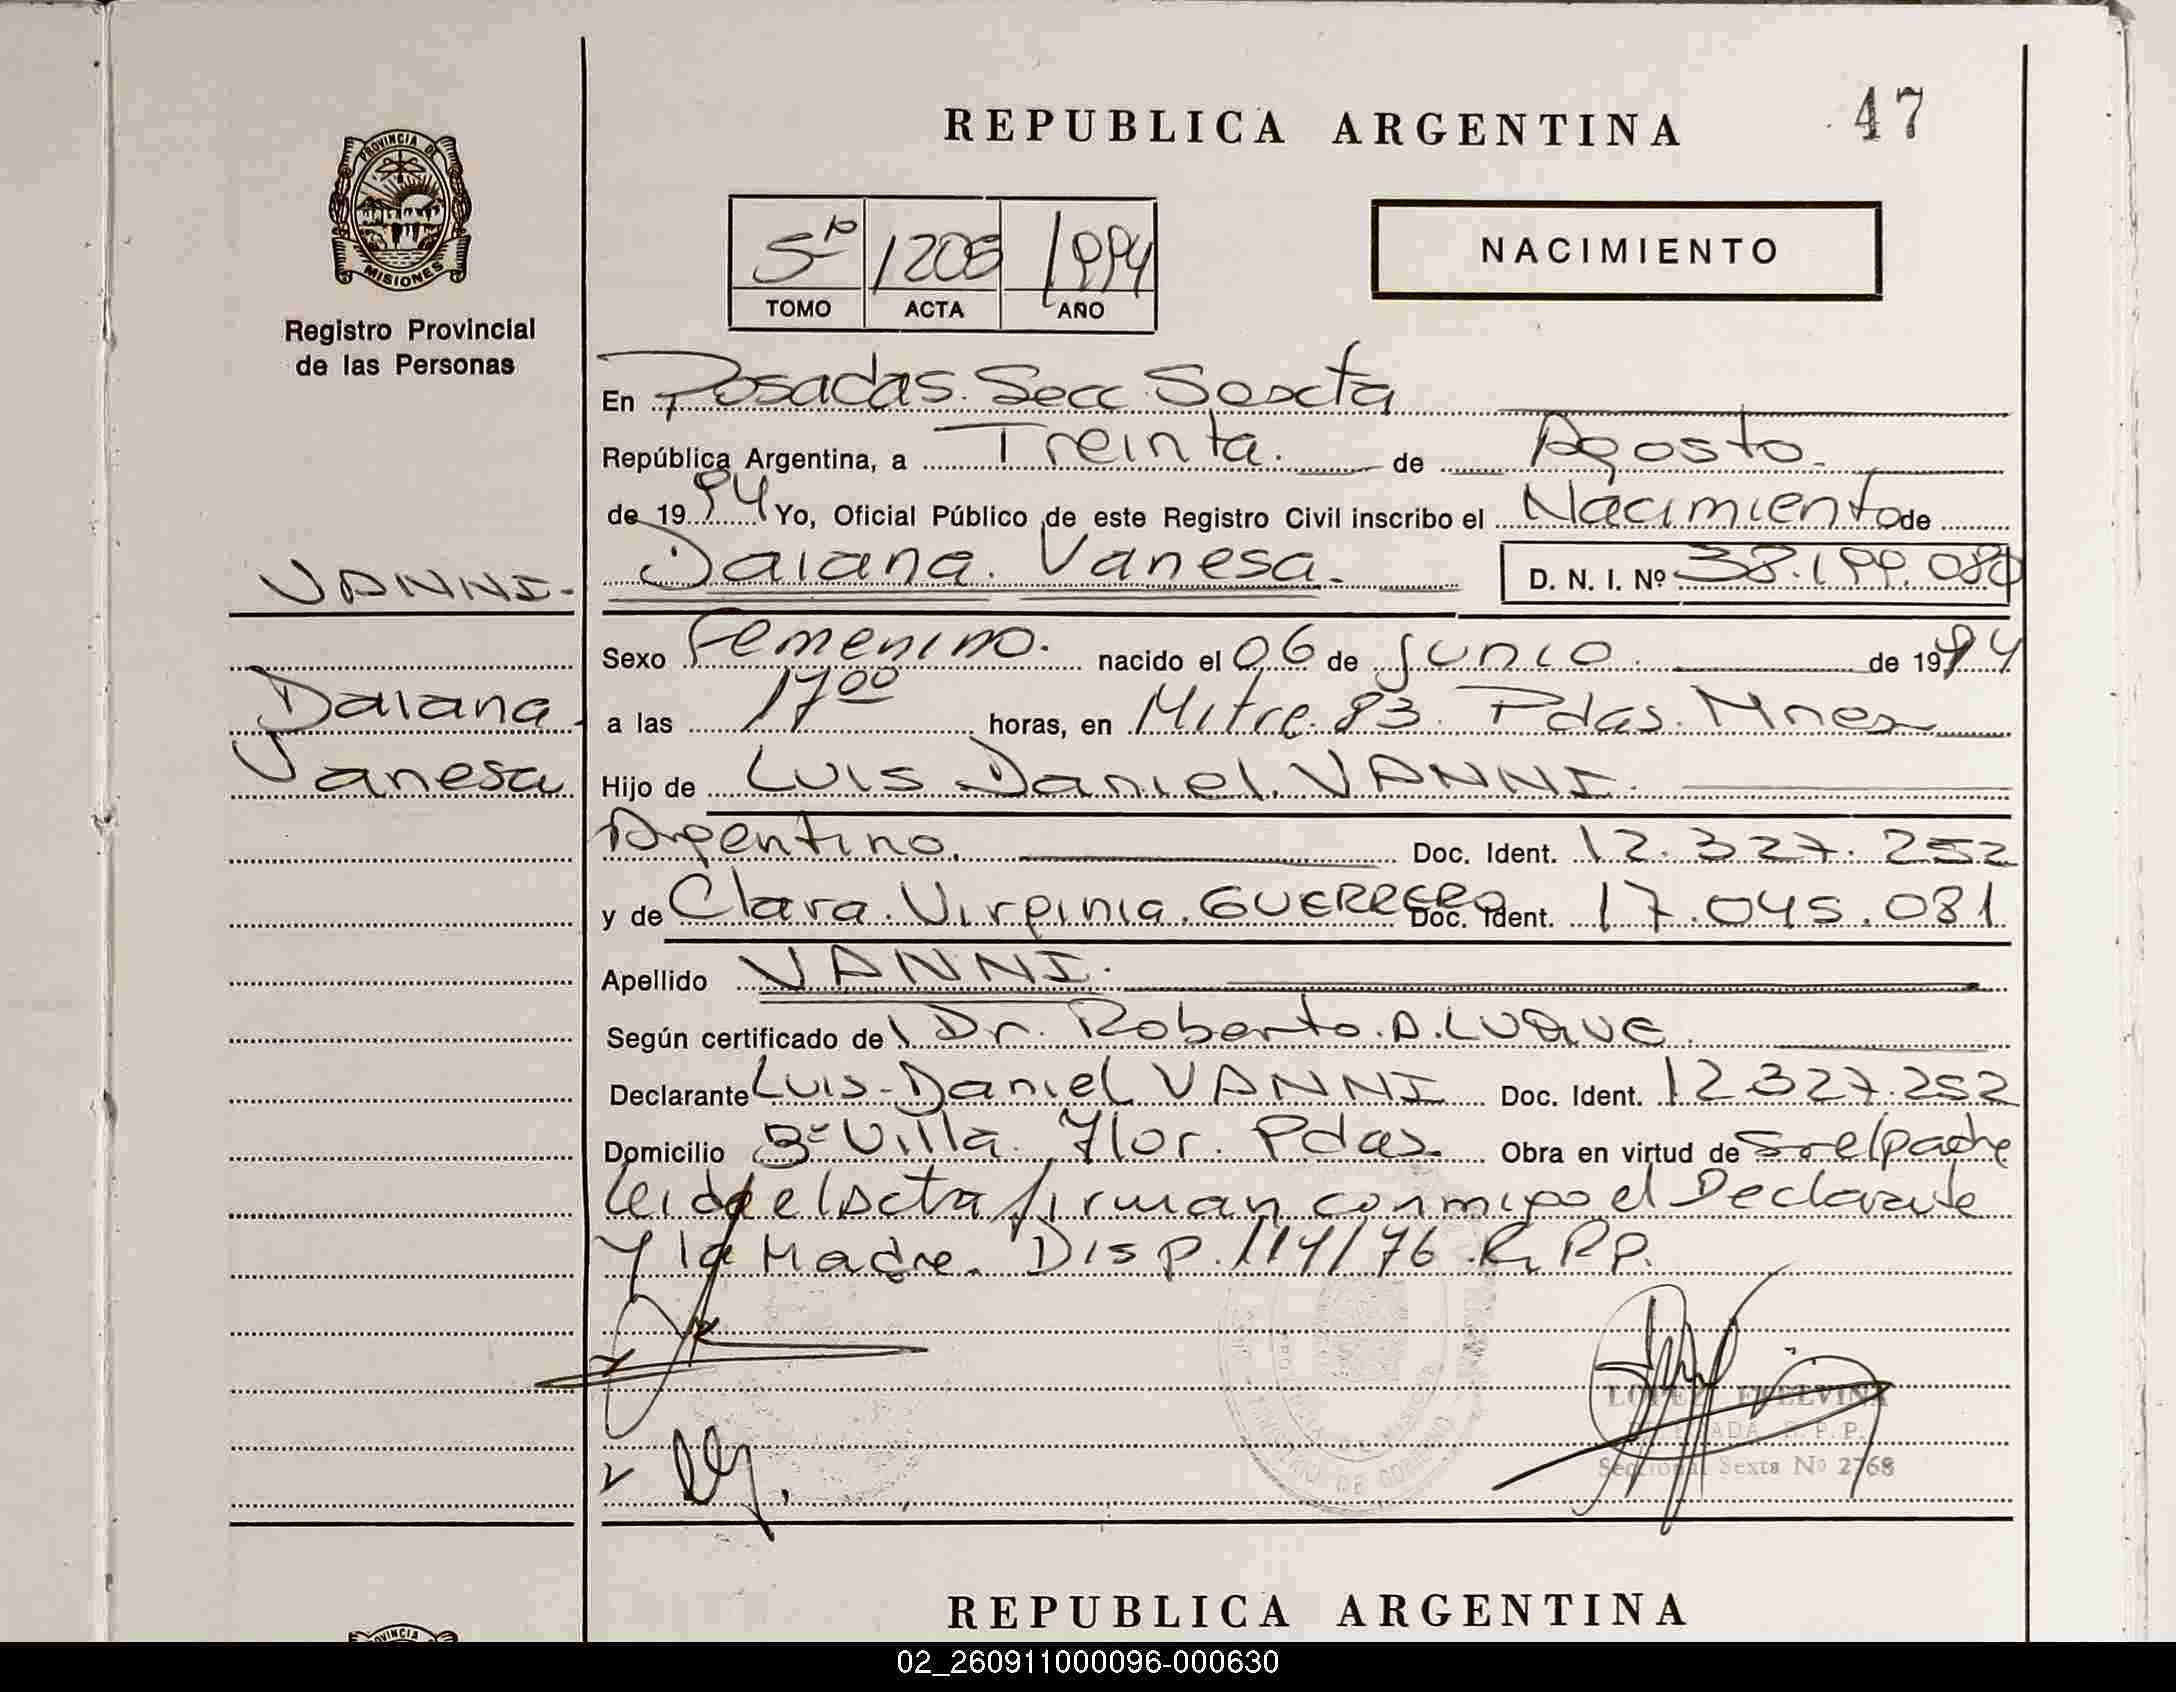 REPUBLICA ARGENTINA
47
PROVINCIA DE
MISIONES
Registro Provincial
de las Personas
5º 1208 1994
TOMO ACTA AÑO
NACIMIENTO
En Posadas. Secc. Sexta
República Argentina, a Treinta. de Agosto.
de 1994 Yo, Oficial Público de este Registro Civil inscribo el Nacimiento de
VANNI.
Daiana. Vanesa. D. N. I. Nº 38.199.080
Sexo Femenino. nacido el 06 de Junio. de 1994
Daiana.
Vanesa
a las 17 00 horas, en Mitre. 93. Pdas. Mnes
Hijo de Luis Daniel. VANNI.
Argentino. Doc. Ident. 12.327.252
y de Clara. Virginia. GUERRERO Doc. Ident. 17.045.081
Apellido VANNI.
Según certificado de Dr. Roberto. A. LUQUE.
Declarante Luis-Daniel VANNI Doc. Ident. 12.327.252
Domicilio Bº Villa. Flor. Pdas. Obra en virtud de S el padre
Leida el Acta firman conmigo el Declarante
y la Madre. Disp. 114/76. R.P.P.
LOPEZ ETELVINA
R. P. P.
Seccional Sexta Nº 2768
REPUBLICA ARGENTINA
PROVINCIA
02_260911000096-000630